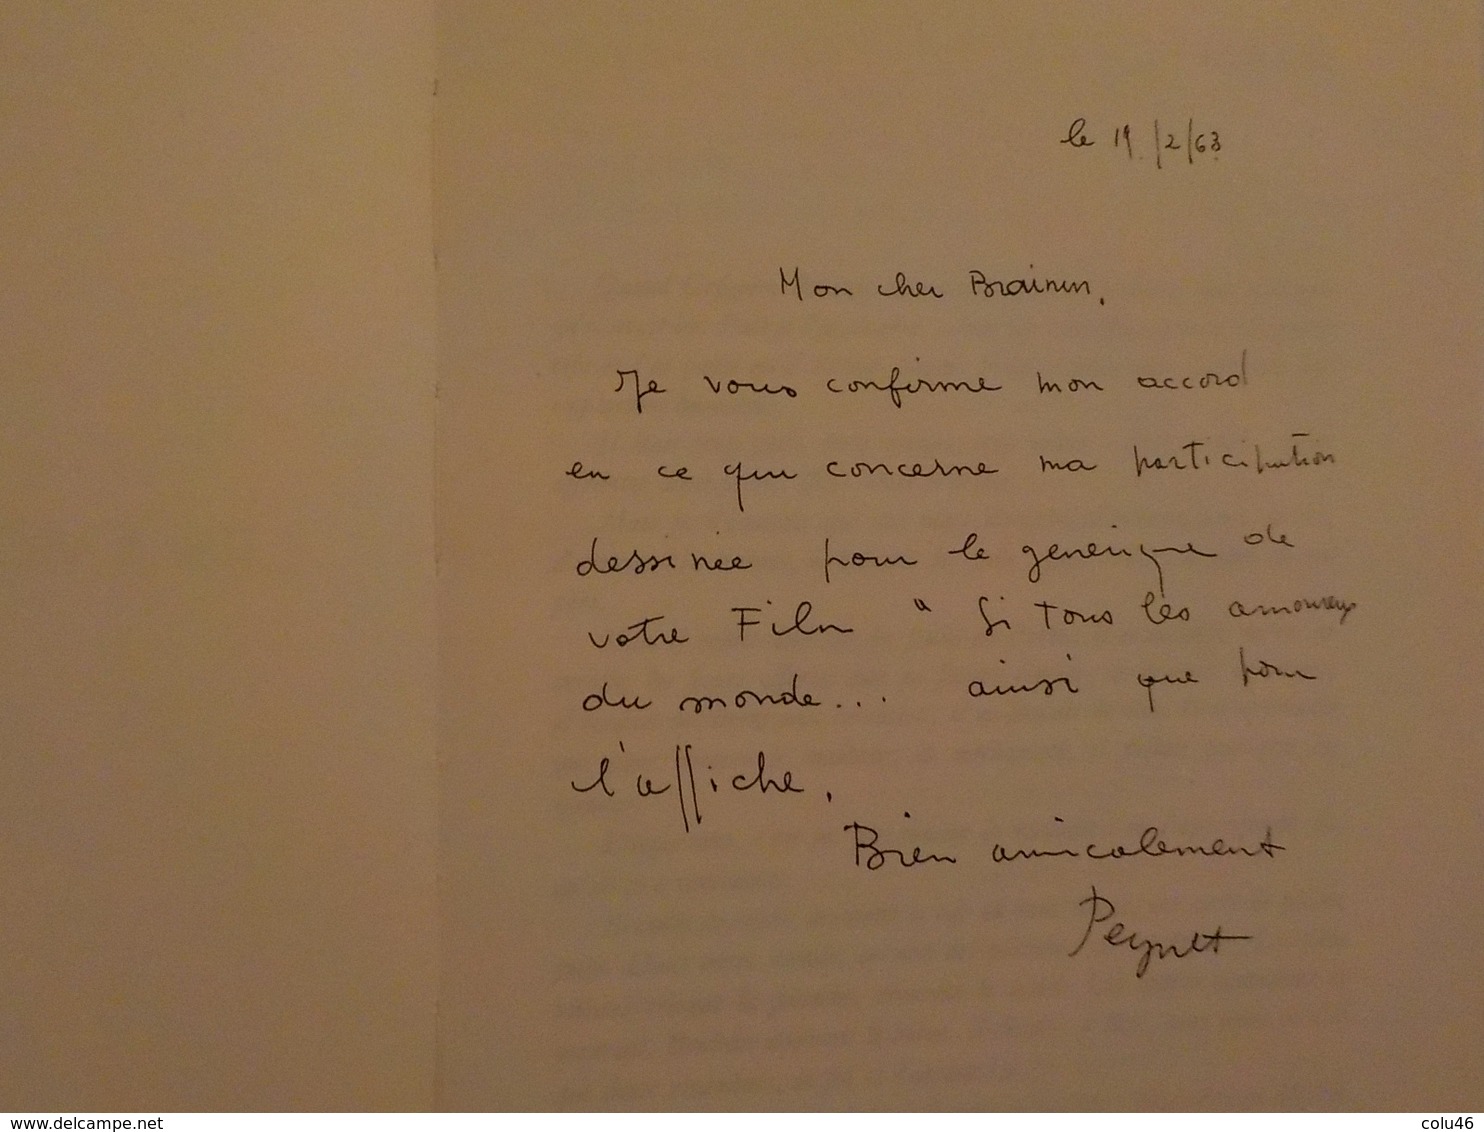 le 19/2/63
Mon cher Brainin,
Je vous confirme mon accord
en ce qui concerne ma participation
dessinée pour le generique de
votre Film " Si tous les amoureux
du monde... ainsi que pour
l'affiche.
Bien amicalement
Peynet
delcampe.net
colu46